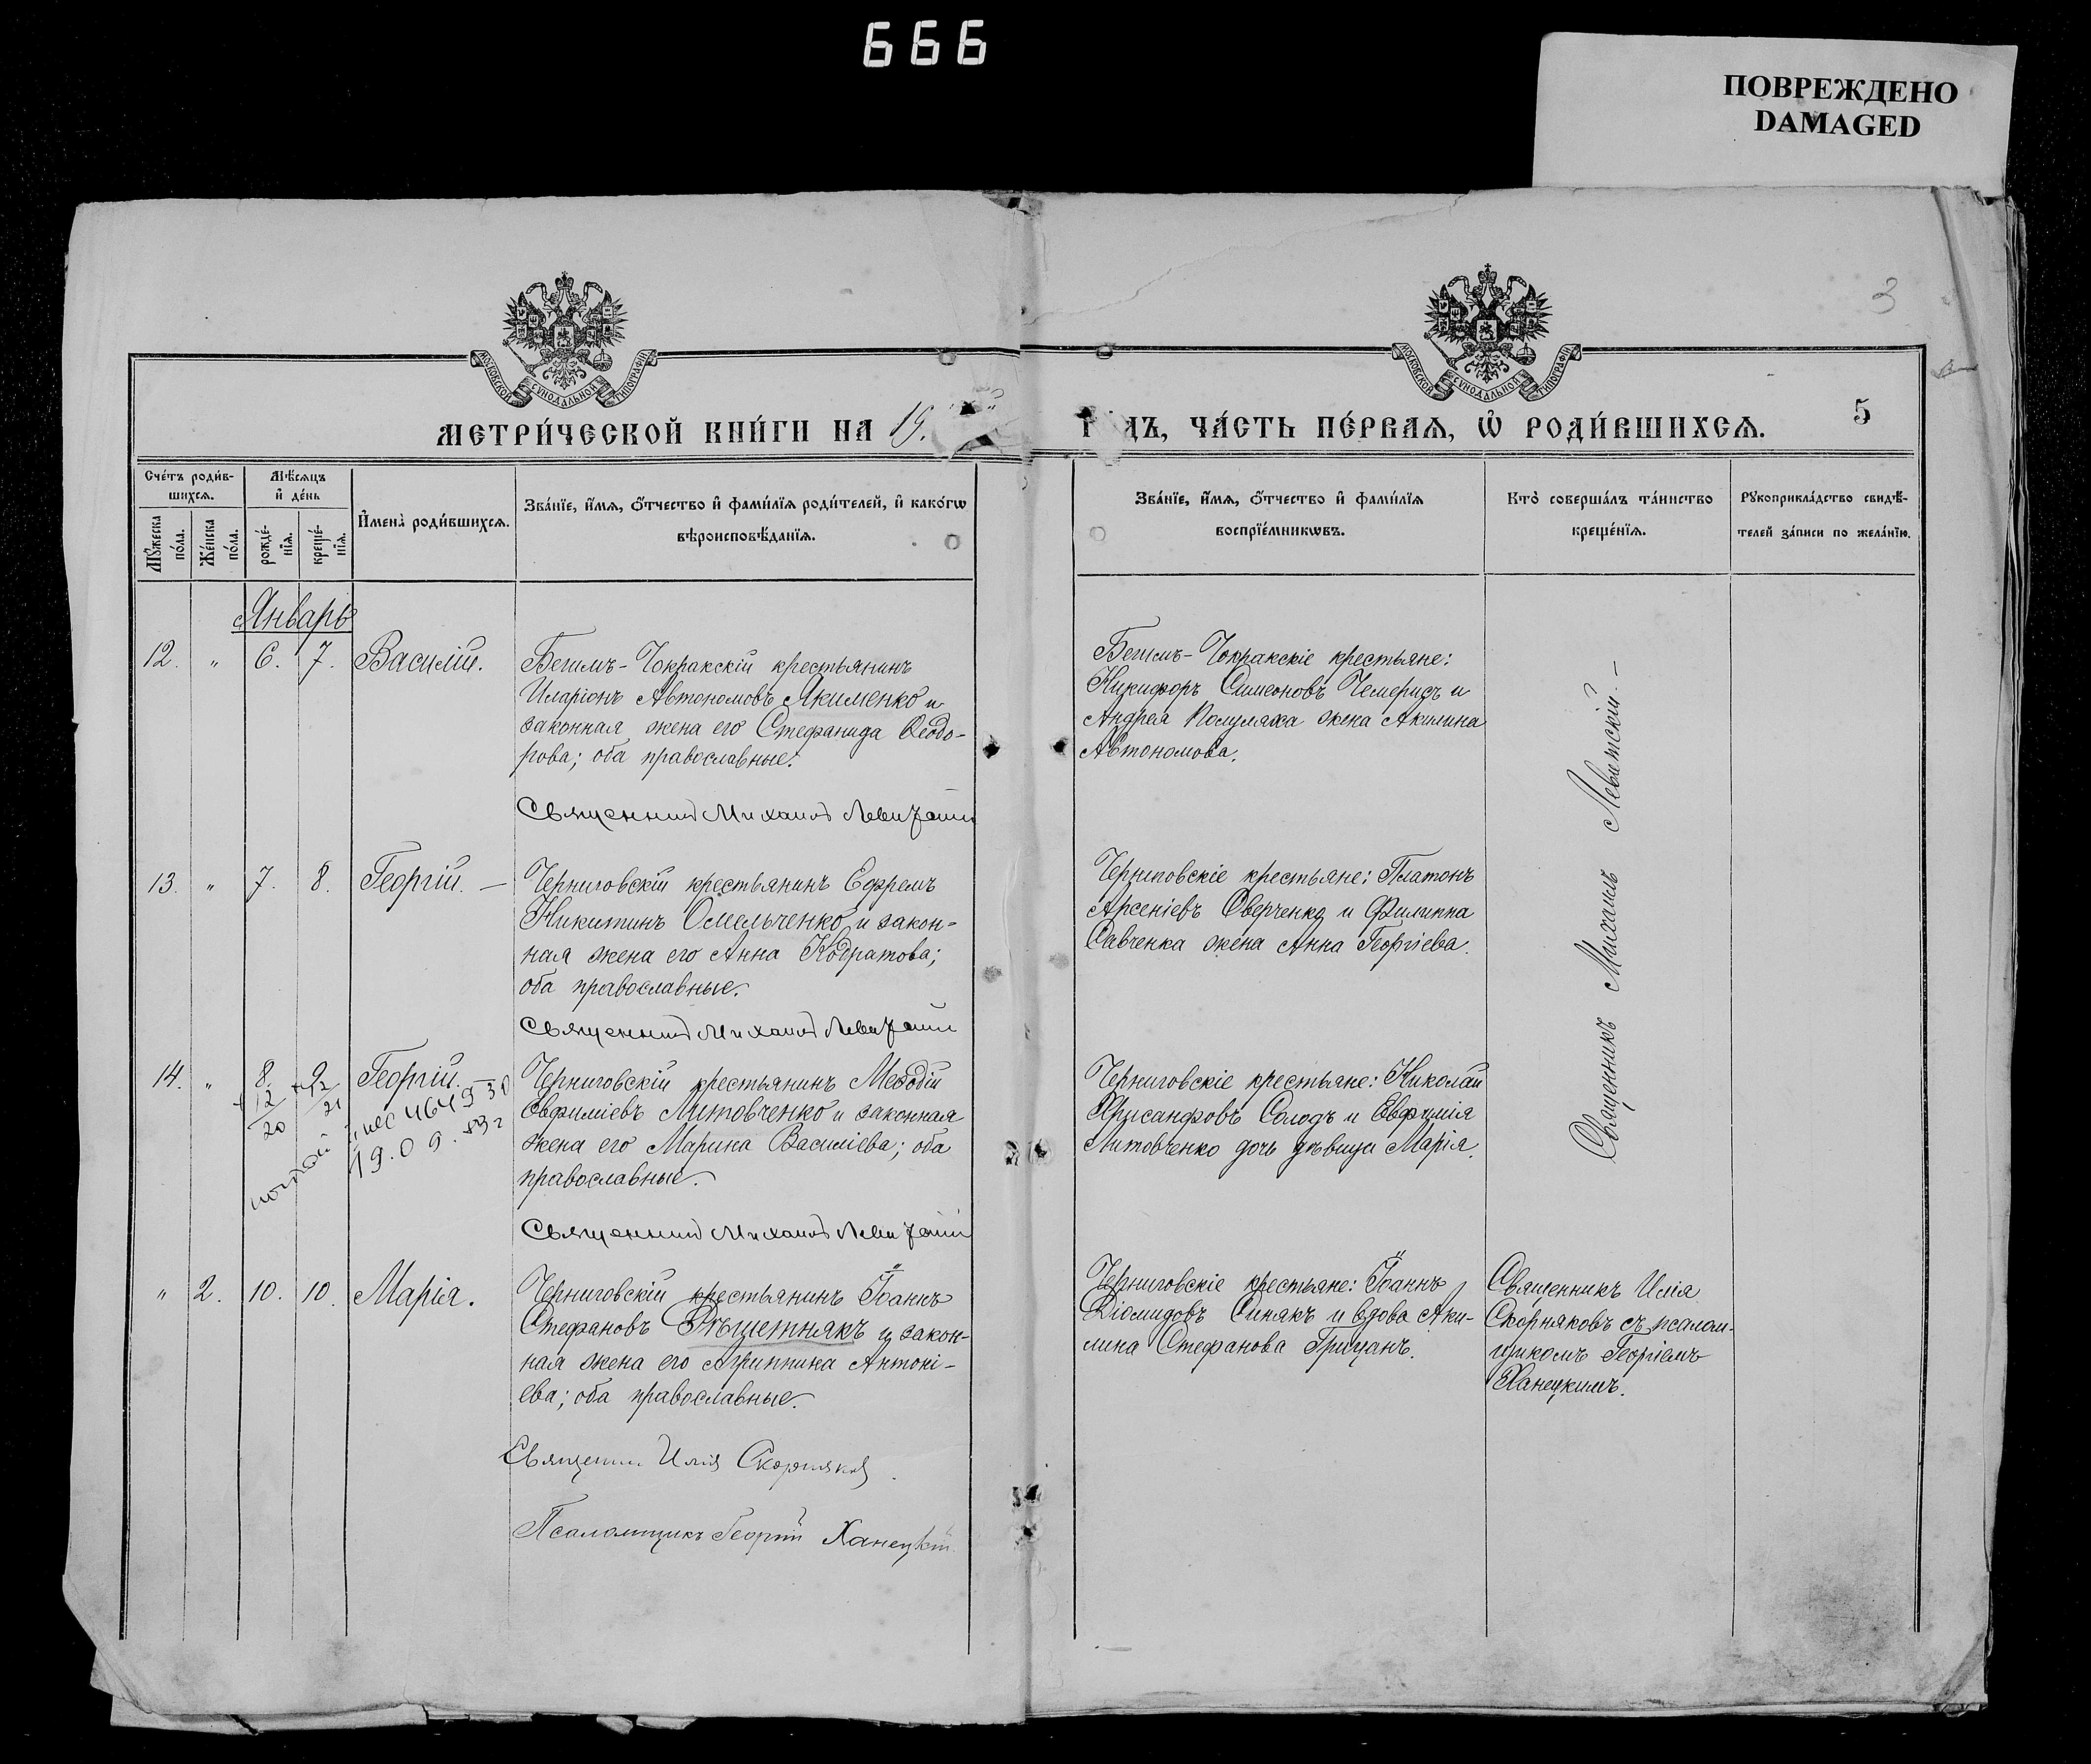 666
ПОВРЕЖДЕНО
DAMAGED
3
МОСКОВСКОЙ СУНОДАЛЬНОЙ ТИПОГРАФІИ
МОСКОВСКОЙ СУНОДАЛЬНОЙ ТИПОГРАФІИ
МЕТРИ́ЧЕСКОЙ КНИ́ГИ НА 19
ДЪ, ЧА́СТЬ ПЕ́РВАѦ, Ѡ҆ РОДИ́ВШИХСѦ.
5
Сче́тъ роди́в-
шихсѧ.
Мѣ́сѧцъ
и҆ де́нь
Мꙋ́жеска
по́ла.
Же́нска
по́ла.
рожде́-
нїѧ.
креще́-
нїѧ.
И҆мена̀ роди́вшихсѧ.
Зва́нїе, и҆́мѧ, ѻ҆́тчество и҆ фами́лїѧ роди́телей, и҆ како́гѡ
вѣроисповѣ́данїѧ.
Зва́нїе, и҆́мѧ, ѻ҆́тчество и҆ фами́лїѧ
воспрїе́мникѡвъ.
Кто̀ соверша́лъ та́инство
креще́нїѧ.
Рꙋкоприкла́дство свидѣ́-
телей за́писи по жела́нїю.
Январь
12. " 6. 7. Василій.
Бегимъ-Чокракскій крестьянинъ
Иларіонъ Автономовъ Якименко и
законная жена его Стефанида Ѳеодо-
рова; оба православные.
Священник Михаил Левитский
Бегимъ-Чокракскіе крестьяне:
Никифоръ Симеоновъ Чемерисъ и
Андрея Полуляха жена Акилина
Автономова.
13. " 7. 8. Георгій. —
Черниговскій крестьянинъ Ефремъ
Никитинъ Омельченко и закон-
ная жена его Анна Кодратова;
оба православные.
Священник Михаил Левитский
Черниговскіе крестьяне: Платонъ
Арсеніевъ Оверченко и Филиппа
Савченка жена Анна Георгіева.
14. " 8. 9. Георгій.
12
20
21
19.09.
Черниговскій крестьянинъ Меѳодій
Евфиміевъ Литовченко и законная
жена его Марина Василіева; оба
православные.
Священник Михаил Левитский
Черниговскіе крестьяне: Николай
Хрисанфовъ Солодъ и Евфимія
Литовченко дочь дѣвица Марія.
Священникъ Михаилъ Левитскій. —
" 2. 10. 10. Марія.
Черниговскій крестьянинъ Іоаннъ
Стефановъ Рѣшетнякъ и закон-
ная жена его Агриппина Антоні-
ева; оба православные.
Священник Илія Скорняков
Псаломщикъ Георгій Ханецкій
Черниговскіе крестьяне: Іоаннъ
Діомидовъ Синякъ и вдова Аки-
лина Стефанова Грицанъ.
Священникъ Илія
Скорняковъ съ псалом-
щикомъ Георгіемъ
Ханецкимъ.